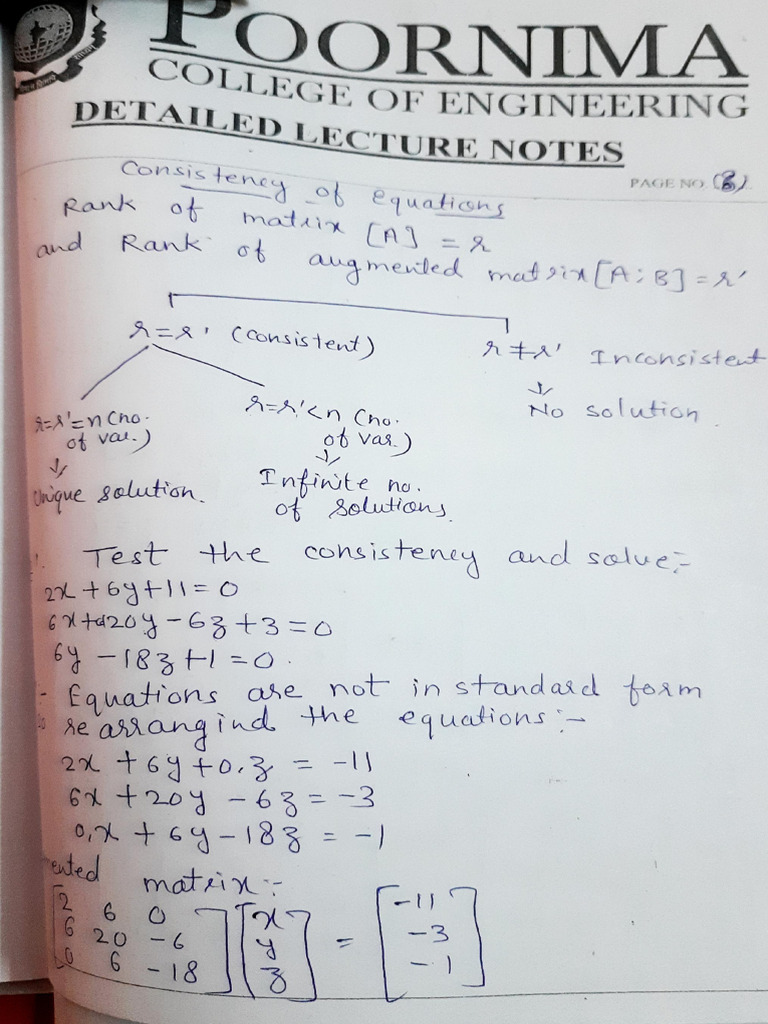 POORNIMA
COLLEGE OF ENGINEERING
DETAILED LECTURE NOTES
PAGE NO. (8).
Consistency of equations
Rank of matrix [A] = r
and Rank of augmented matrix [A:B] = r'
r = r' (consistent)
r ≠ r' Inconsistent
↓
No solution.
r=r'=n (no. of var.)
↓
Unique solution.
r=r'<n (no. of var.)
↓
Infinite no. of solutions.
Test the consistency and solve:-
2x + 6y + 11 = 0
6x + 20y - 6z + 3 = 0
6y - 18z + 1 = 0.
Equations are not in standard form
rearrangind the equations:-
2x + 6y + 0.z = -11
6x + 20y - 6z = -3
0.x + 6y - 18z = -1
matrix:-
[2 6 0] [x] = [-11]
[6 20 -6] [y] [-3]
[0 6 -18] [z] [-1]